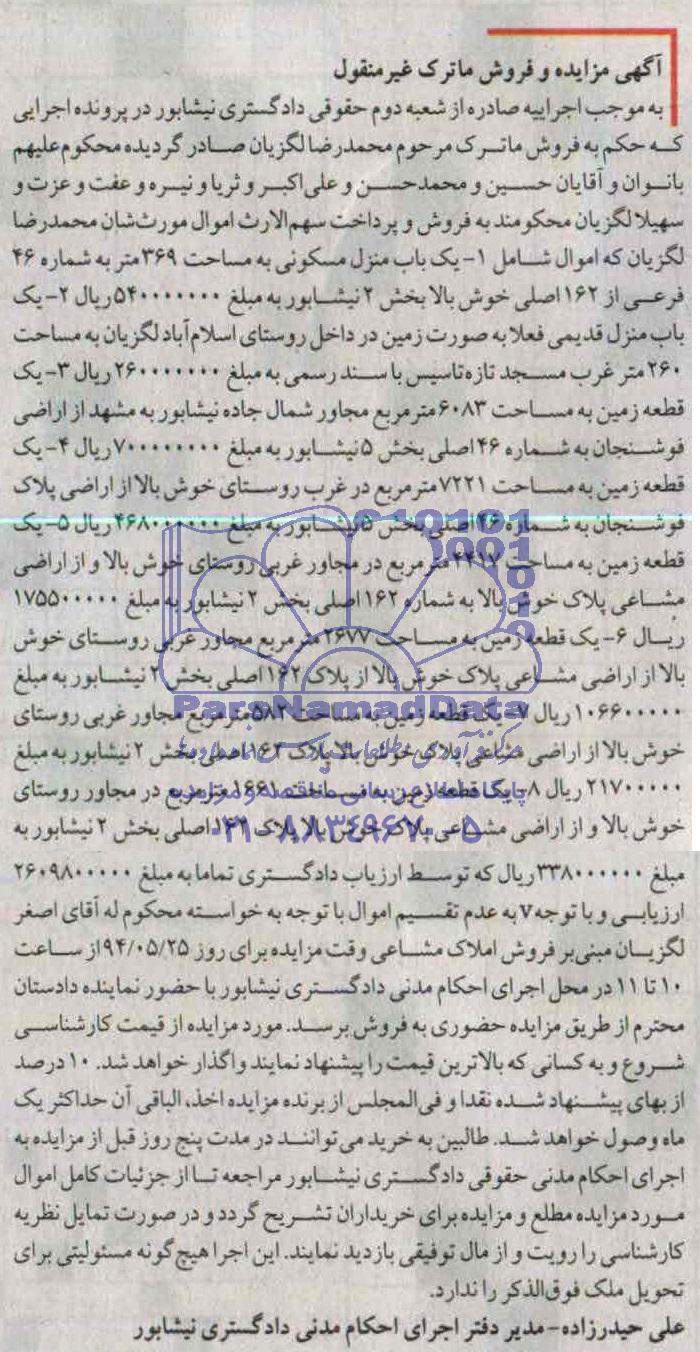 آگهی مزایده و فروش ماترک غیرمنقول
به موجب اجراییه صادره از شعبه دوم حقوقی دادگستری نیشابور در پرونده اجرایی
که حکم به فروش ماترک مرحوم محمدرضا لگزیان صادر گردیده محکوم‌علیهم
بانوان و آقایان حسین و محمدحسن و علی‌اکبر و ثریا و نیره و عفت و عزت و
سهیلا لگزیان محکومند به فروش و پرداخت سهم‌الارث اموال مورث‌شان محمدرضا
لگزیان که اموال شامل ۱- یک باب منزل مسکونی به مساحت ۳۶۹ متر به شماره ۴۶
فرعی از ۱۶۲ اصلی خوش بالا بخش ۲ نیشابور به مبلغ ۵۴۰۰۰۰۰۰۰ ریال ۲- یک
باب منزل قدیمی فعلا به صورت زمین در داخل روستای اسلام‌آباد لگزیان به مساحت
۲۶۰ متر غرب مسجد تازه تاسیس با سند رسمی به مبلغ ۲۶۰۰۰۰۰۰۰ ریال ۳- یک
قطعه زمین به مساحت ۶۰۸۳ مترمربع مجاور شمال جاده نیشابور به مشهد از اراضی
فوشنجان به شماره ۴۶ اصلی بخش ۵ نیشابور به مبلغ ۷۰۰۰۰۰۰۰۰ ریال ۴- یک
قطعه زمین به مساحت ۷۲۲۱ مترمربع در غرب روستای خوش بالا از اراضی پلاک
فوشنجان به شماره ۴۶ اصلی بخش ۵ نیشابور به مبلغ ۴۶۸۰۰۰۰۰۰ ریال ۵- یک
قطعه زمین به مساحت مترمربع در مجاور غربی روستای خوش بالا و از اراضی
مشاعی پلاک خوش بالا به شماره ۱۶۲ اصلی بخش ۲ نیشابور به مبلغ ۱۷۵۵۰۰۰۰۰
ریال ۶- یک قطعه زمین به مساحت ۲۶۷۷ مترمربع مجاور غربی روستای خوش
بالا از اراضی مشاعی پلاک خوش بالا از پلاک ۱۶۲ اصلی بخش ۲ نیشابور به مبلغ
ParsNamadData
۱۰۶۶۰۰۰۰۰ ریال ۷- یک قطعه زمین به مساحت ۵۸۲ مترمربع مجاور غربی روستای
خوش بالا از اراضی مشاعی پلاک خوش بالا پلاک ۱۶۲ اصلی بخش ۲ نیشابور به مبلغ
۲۱۷۰۰۰۰۰ ریال ۸- یک قطعه زمین به مساحت ۱۶۶۱ مترمربع در مجاور روستای
خوش بالا و از اراضی مشاعی پلاک خوش بالا پلاک اصلی بخش ۲ نیشابور به
۰۲۱-۸۸۳۴۹۶۷۰-۵
مبلغ ۳۳۸۰۰۰۰۰۰ ریال که توسط ارزیاب دادگستری تماما به مبلغ ۲۶۰۹۸۰۰۰۰۰
ارزیابی و با توجه۷ به عدم تقسیم اموال با توجه به خواسته محکوم له آقای اصغر
لگزیان مبنی‌بر فروش املاک مشاعی وقت مزایده برای روز ۹۴/۰۵/۲۵ از ساعت
۱۰ تا ۱۱ در محل اجرای احکام مدنی دادگستری نیشابور با حضور نماینده دادستان
محترم از طریق مزایده حضوری به فروش برسد. مورد مزایده از قیمت کارشناسی
شروع و به کسانی که بالاترین قیمت را پیشنهاد نمایند واگذار خواهد شد. ۱۰ درصد
از بهای پیشنهاد شده نقدا و فی‌المجلس از برنده مزایده اخذ، الباقی آن حداکثر یک
ماه وصول خواهد شد. طالبین به خرید می‌توانند در مدت پنج روز قبل از مزایده به
اجرای احکام مدنی حقوقی دادگستری نیشابور مراجعه تا از جزئیات کامل اموال
مورد مزایده مطلع و مزایده برای خریداران تشریح گردد و در صورت تمایل نظریه
کارشناسی را رویت و از مال توقیفی بازدید نمایند. این اجرا هیچ‌گونه مسئولیتی برای
تحویل ملک فوق‌الذکر را ندارد.
علی حیدرزاده- مدیر دفتر اجرای احکام مدنی دادگستری نیشابور